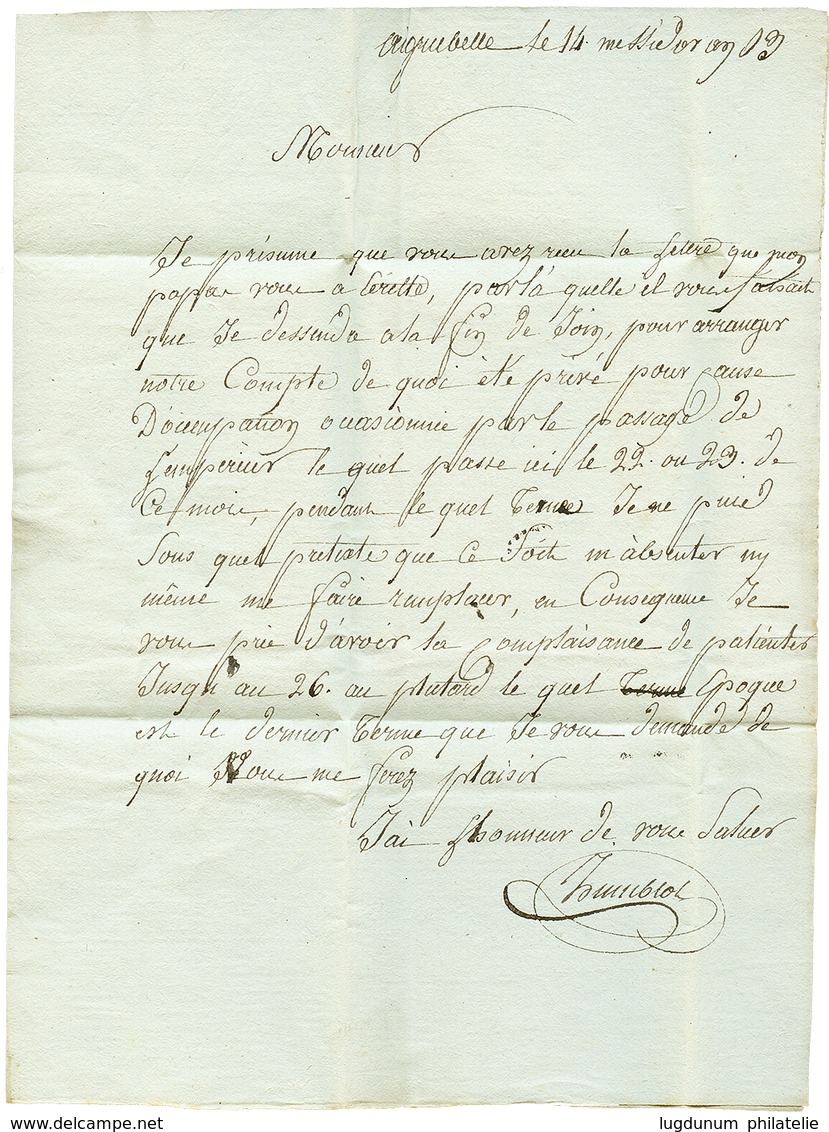 aiguebelle le 14 messidor an 13
Monsieur
Je présume que vous avez recu la lettre que mon
papa vous a Cérette, par la quelle il vous faisait
que Je dessende a la fin de Join, pour arranger
notre Compte de quoi été privé pour Cause
D'occupation occasionnée par le passage de
L'emperieur le quel passe ici le 22. ou 23. de
Ce mois, pendant le quel Terme Je ne puis
Sous quel pretexte que ce Soit m'absenter ny
même me faire remplacer, en Consequence Je
vous prie d'avoir la Complaisance de patienter
Jusqu'au 26. au plutard le quel Terme Epoque
est le dernier Terme que Je vous demande de
quoi Vous me ferez plaisir
J'ai L'honneur de vous Saluer
delcampe.net
lugdunum philatelie